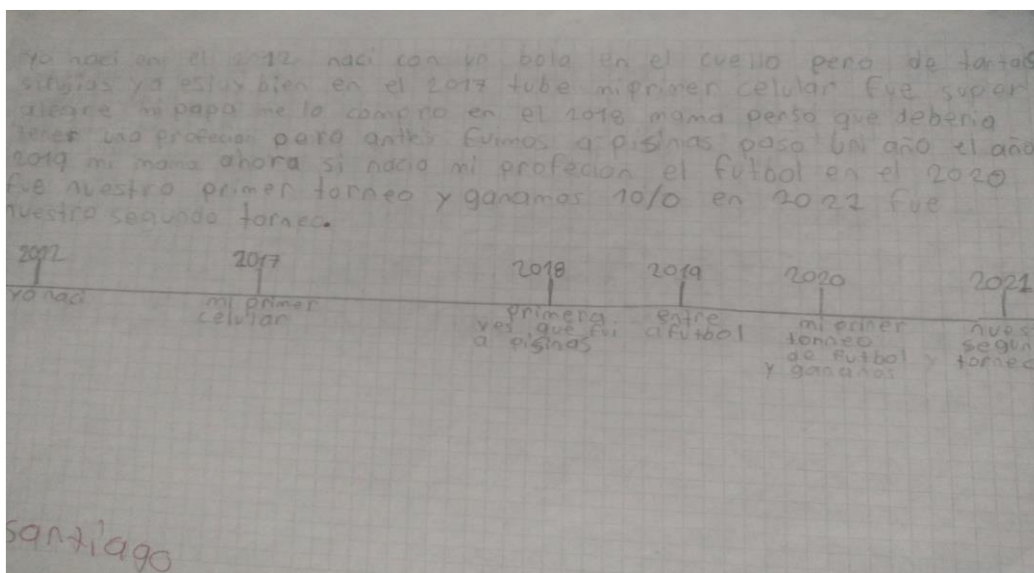 yo naci en el 2012 naci con un bola en el cuello pero de tantas
sirujias ya estuy bien en el 2017 tube mi primer celular fue super
alegre mi papa me lo compro en el 2018 mama penso que deberia
tener una profecion pero antes fuimos a pisinas paso un año el año
2019 mi mama ahora si nacio mi profecion el futbol en el 2020
fue nuestro primer torneo y ganamos 10/0 en 2021 fue
nuestro segundo torneo.
2012 2017 2018 2019 2020 2021
yo naci mi primer celular primera ves que fui a pisinas entre a futbol mi primer torneo de futbol y ganamos nues segun torneo
santiago